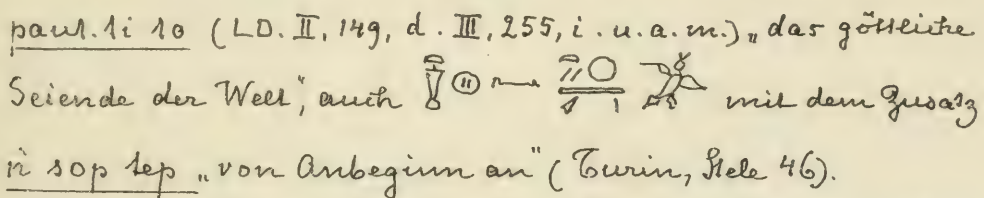 paut.ti to (LD. II, 149, d. III, 255, i. u. a. m.) „das göttliche
Seiende der Welt“, auch mit dem Zusatz
n sop tep „von Anbeginn an“ (Turin, Stele 46).